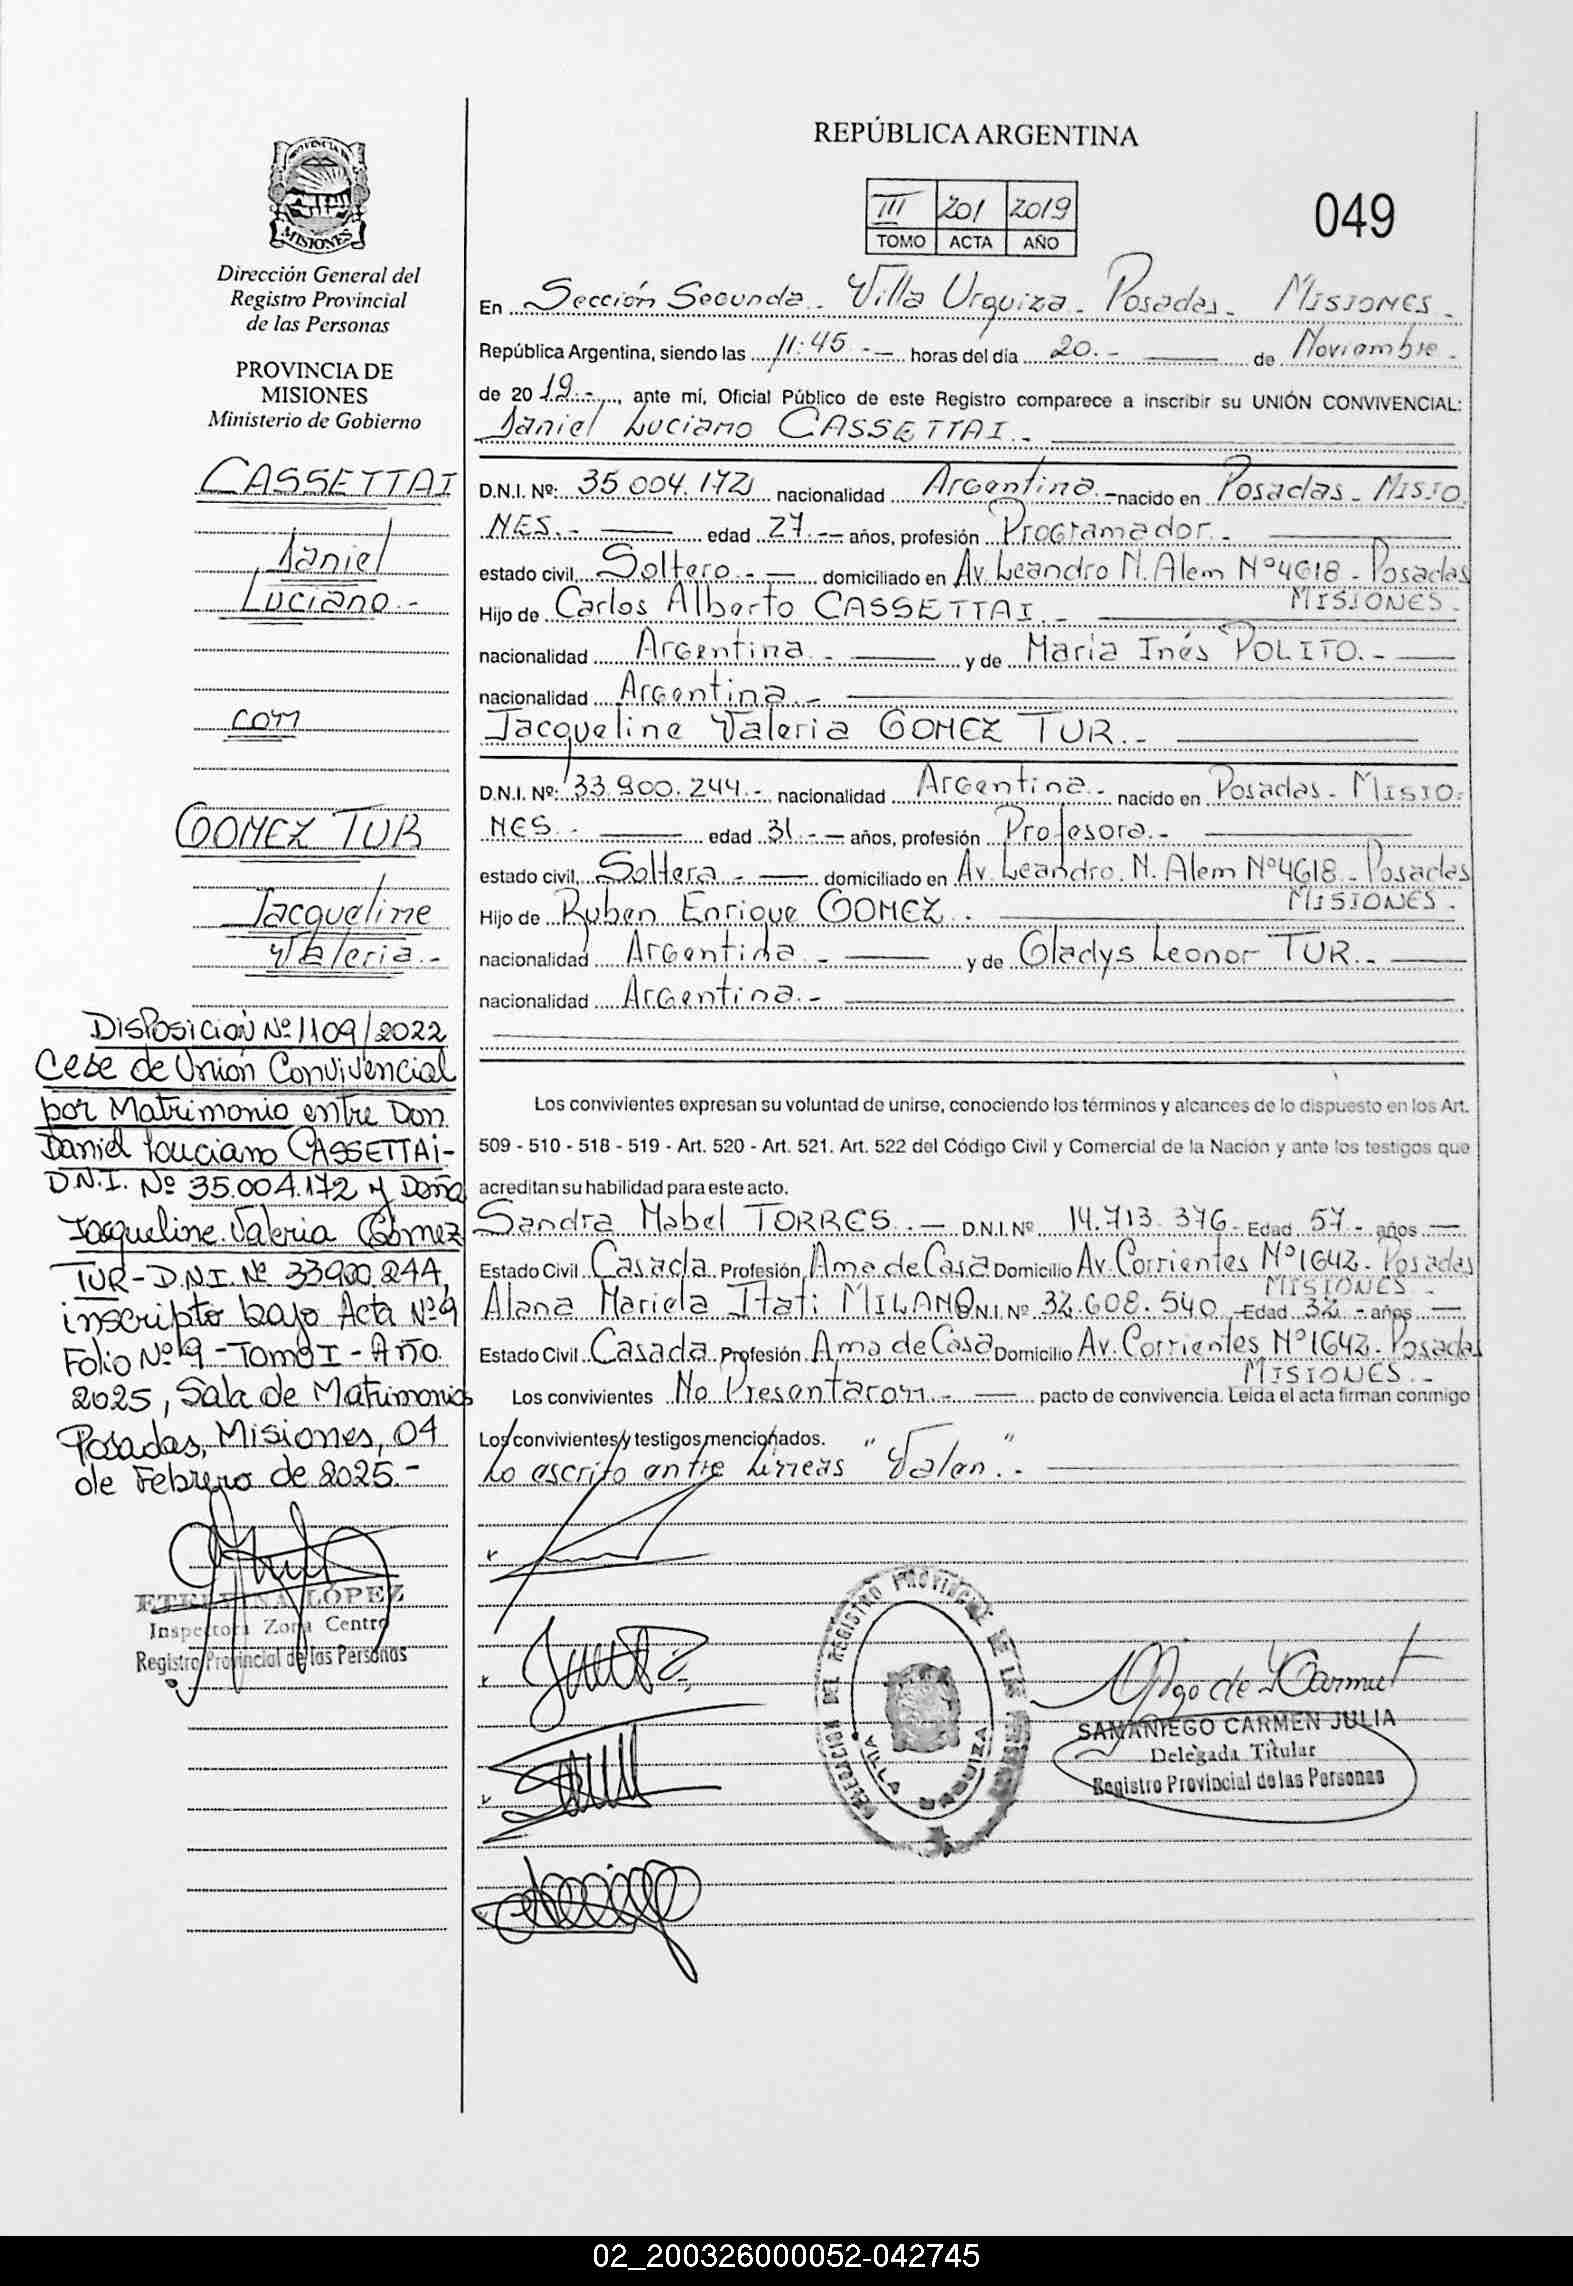 REPÚBLICA ARGENTINA
III 201 2019
TOMO ACTA AÑO
049
PROVINCIA DE
MISIONES
Dirección General del
Registro Provincial
de las Personas
PROVINCIA DE
MISIONES
Ministerio de Gobierno
CASSETTAI
Daniel
Luciano.-
con
GOMEZ TUR
Jacqueline
Valeria.-
Disposición Nº 1109/2022
Cese de Unión Convivencial
por Matrimonio entre Don
Daniel Luciano CASSETTAI-
D.N.I. Nº 35.004.172 y Doña
Jacqueline Valeria Gómez
TUR-D.N.I. Nº 33.900.244,
inscripto bajo Acta Nº 9
Folio Nº 9 - Tomo I - Año
2025, Sala de Matrimonios
Posadas, Misiones, 04
de Febrero de 2025.-
ETELVINA LÓPEZ
Inspectora Zona Centro
Registro Provincial de las Personas
En Sección Segunda.- Villa Urquiza - Posadas - MISIONES.-
República Argentina, siendo las 11:45.-— horas del día 20.- —— de Noviembre.-
de 2019.-, ante mí, Oficial Público de este Registro comparece a inscribir su UNIÓN CONVIVENCIAL:
Daniel Luciano CASSETTAI.- ——
D.N.I. Nº: 35.004.172 nacionalidad Argentina.- nacido en Posadas - MISIO
NES.- —— edad 27.-— años, profesión Programador.- ——
estado civil, Soltero.- — domiciliado en Av. Leandro N. Alem Nº 4618 - Posadas
MISIONES.-
Hijo de Carlos Alberto CASSETTAI.- ——
nacionalidad Argentina.- —— y de María Inés POLITO.- ——
nacionalidad Argentina.- ——
Jacqueline Valeria GOMEZ TUR.- ——
D.N.I. Nº: 33.900.244.- nacionalidad Argentina.- nacido en Posadas - MISIO-
NES.- —— edad 31.-— años, profesión Profesora.- ——
estado civil, Soltera.- — domiciliado en Av. Leandro. N. Alem Nº 4618 - Posadas
MISIONES.-
Hijo de Ruben Enrique GOMEZ.- ——
nacionalidad Argentina.- —— y de Gladys Leonor TUR.- ——
nacionalidad Argentina.- ——
Los convivientes expresan su voluntad de unirse, conociendo los términos y alcances de lo dispuesto en los Art.
509 - 510 - 518 - 519 - Art. 520 - Art. 521. Art. 522 del Código Civil y Comercial de la Nación y ante los testigos que
acreditan su habilidad para este acto.
Sandra Mabel TORRES.- — D.N.I. Nº 14.713.376- Edad 57- años —
Estado Civil Casada Profesión Ama de Casa Domicilio Av. Corrientes Nº 1642 - Posadas
MISIONES.-
Alana Mariela Itatí MILANO D.N.I. Nº 32.608.540 Edad 32 - años —
Estado Civil Casada Profesión Ama de Casa Domicilio Av. Corrientes Nº 1642 - Posadas
MISIONES.-
Los convivientes No Presentaron.- —— pacto de convivencia. Leída el acta firman conmigo
Los convivientes y testigos mencionados.
Lo escrito entre Líneas "Valen".- ——
DELEGACION DEL REGISTRO PROVINCIAL DE LAS PERSONAS
VILLA URQUIZA
SAMANIEGO CARMEN JULIA
Delegada Titular
Registro Provincial de las Personas
02_200326000052-042745